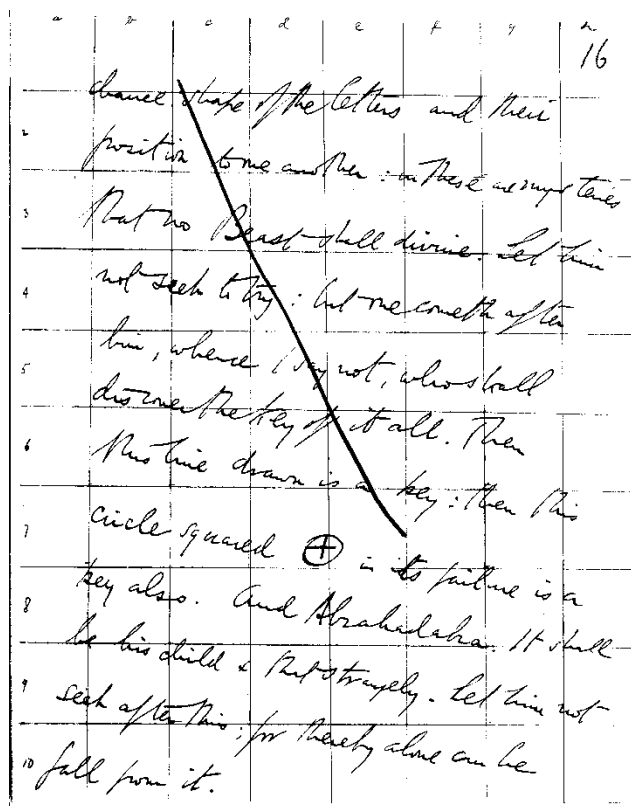 a b c d e f g h
16
chance shape of the letters and their
2 position to one another: in these are mysteries
3 that no Beast shall divine. Let him
4 not seek to try: but one cometh after
5 him, whence I say not, who shall
discover the key of it all. Then
6 this line drawn is a key: then this
7 circle squared in its failure is a
key also. And Abrahadabra. It shall
8 be his child & that strangely. Let him not
9 seek after this; for thereby alone can he
10 fall from it.